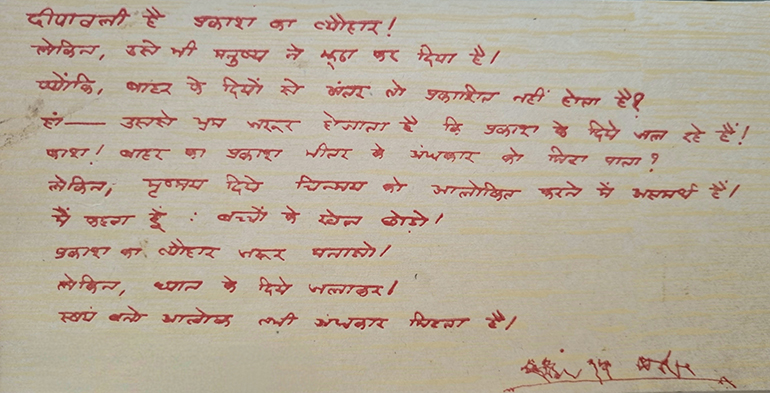 दीपावली है प्रकाश का त्यौहार!
लेकिन, उसे भी मनुष्य ने झूठा कर दिया है।
क्योंकि, बाहर के दियों से अंतर तो प्रकाशित नहीं होता है?
हां— उससे भ्रम जरूर होजाता है कि प्रकाश के दिये जल रहे हैं!
काश! बाहर का प्रकाश भीतर के अंधकार को मिटा पाता?
लेकिन, मृण्मय दिये चिन्मय को आलोकित करने में असमर्थ हैं।
मैं कहता हूँ : बच्चों के खेल छोड़ो!
प्रकाश का त्यौहार जरूर मनाओ।
लेकिन, ध्यान के दिये जलाकर!
स्वयं बनो आलोक तभी अंधकार मिटता है।